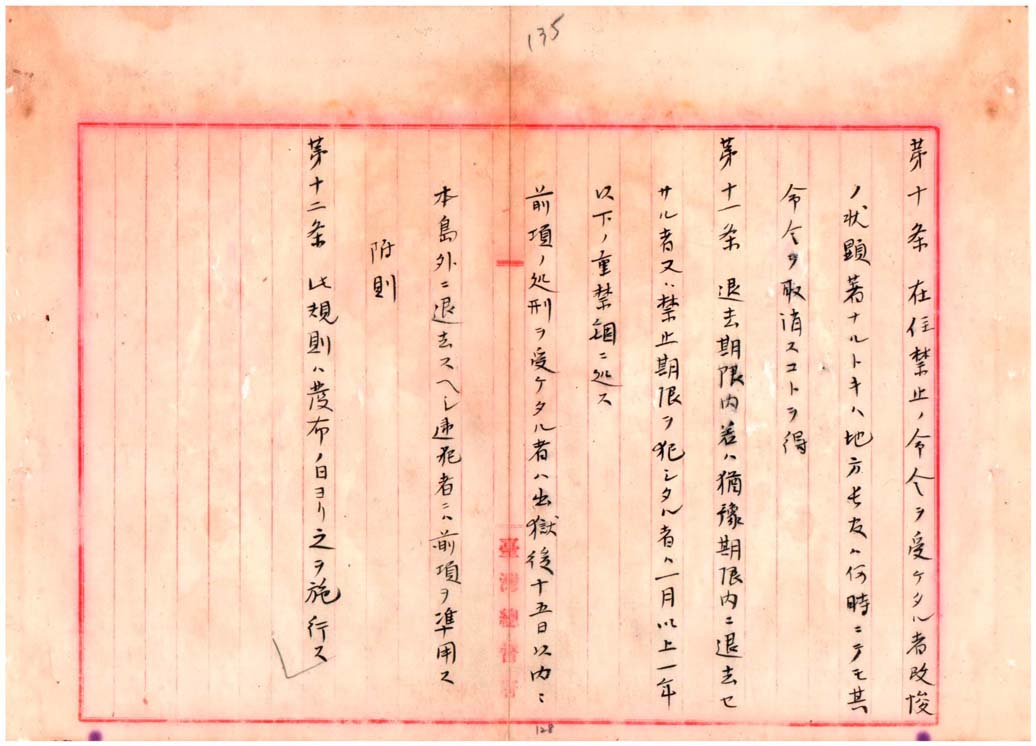 135
第十条 在住禁止ノ命令ヲ受ケタル者改悛
ノ状顕著ナルトキハ地方長官ハ何時ニテモ其
命令ヲ取消スコトヲ得
第十一条 退去期限内若ハ猶豫期限内ニ退去セ
サル者又ハ禁止期限ヲ犯シタル者ハ一月以上一年
以下ノ重禁錮ニ処ス
前項ノ処刑ヲ受ケタル者ハ出獄後十五日以内ニ
臺灣總督府
本島外ニ退去スヘシ違犯者ニハ前項ヲ準用ス
附則
第十二条 此規則ハ發布ノ日ヨリ之ヲ施行ス
128